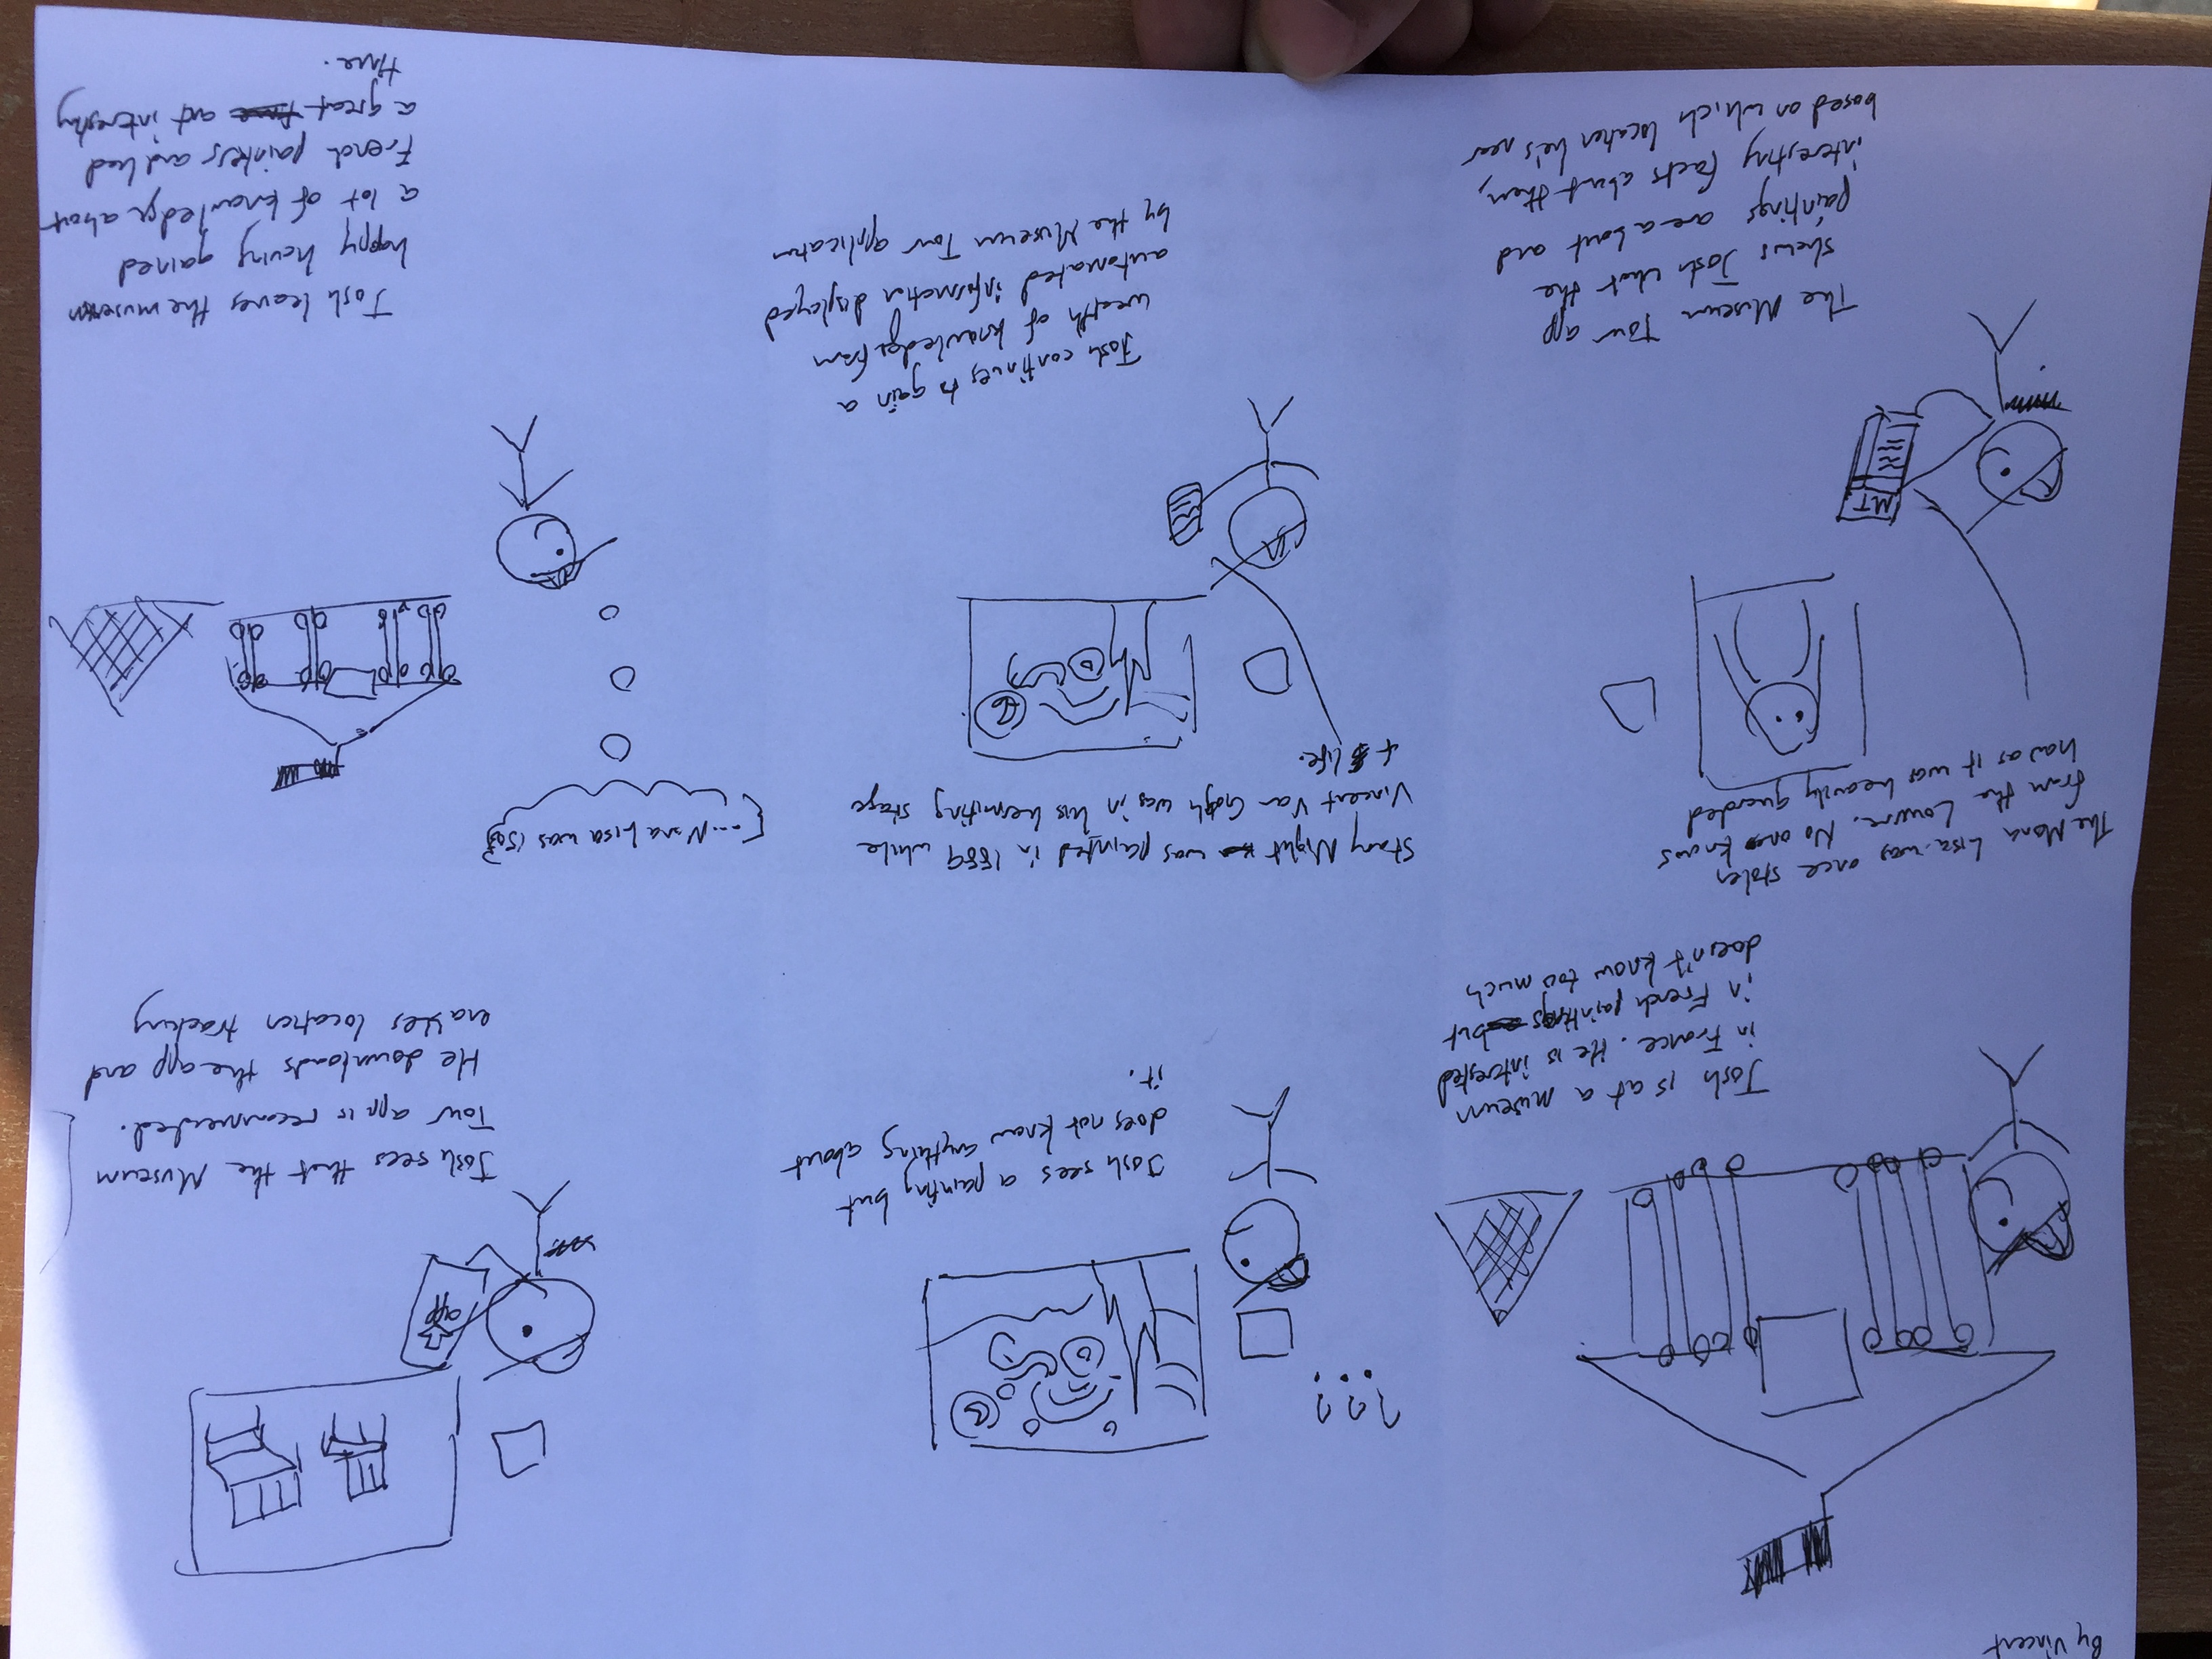 By Vincent
Josh is at a museum
in France. He is interested
in French paintings but
doesn't know too much
? ? ?
Josh sees a painting but
does not know anything about
it.
app
Josh sees that the Museum
Tour app is recommended.
He downloads the app and
enables location tracking
The Mona Lisa was once stolen
from the Louvre. No one knows
how as it was heavily guarded
MT
The Museum Tour app
shows Josh what the
paintings are about and
interesting facts about them,
based on which location he's near
Stary Night was painted in 1889 while
Vincent Van Gogh was in his hermiting stage
of life.
Josh continues to gain a
wealth of knowledge from
automated information displayed
by the Museum Tour application
...Mona Lisa was 1503
Josh leaves the museum
happy having gained
a lot of knowledge about
French painters and had
a great and interesting
time.